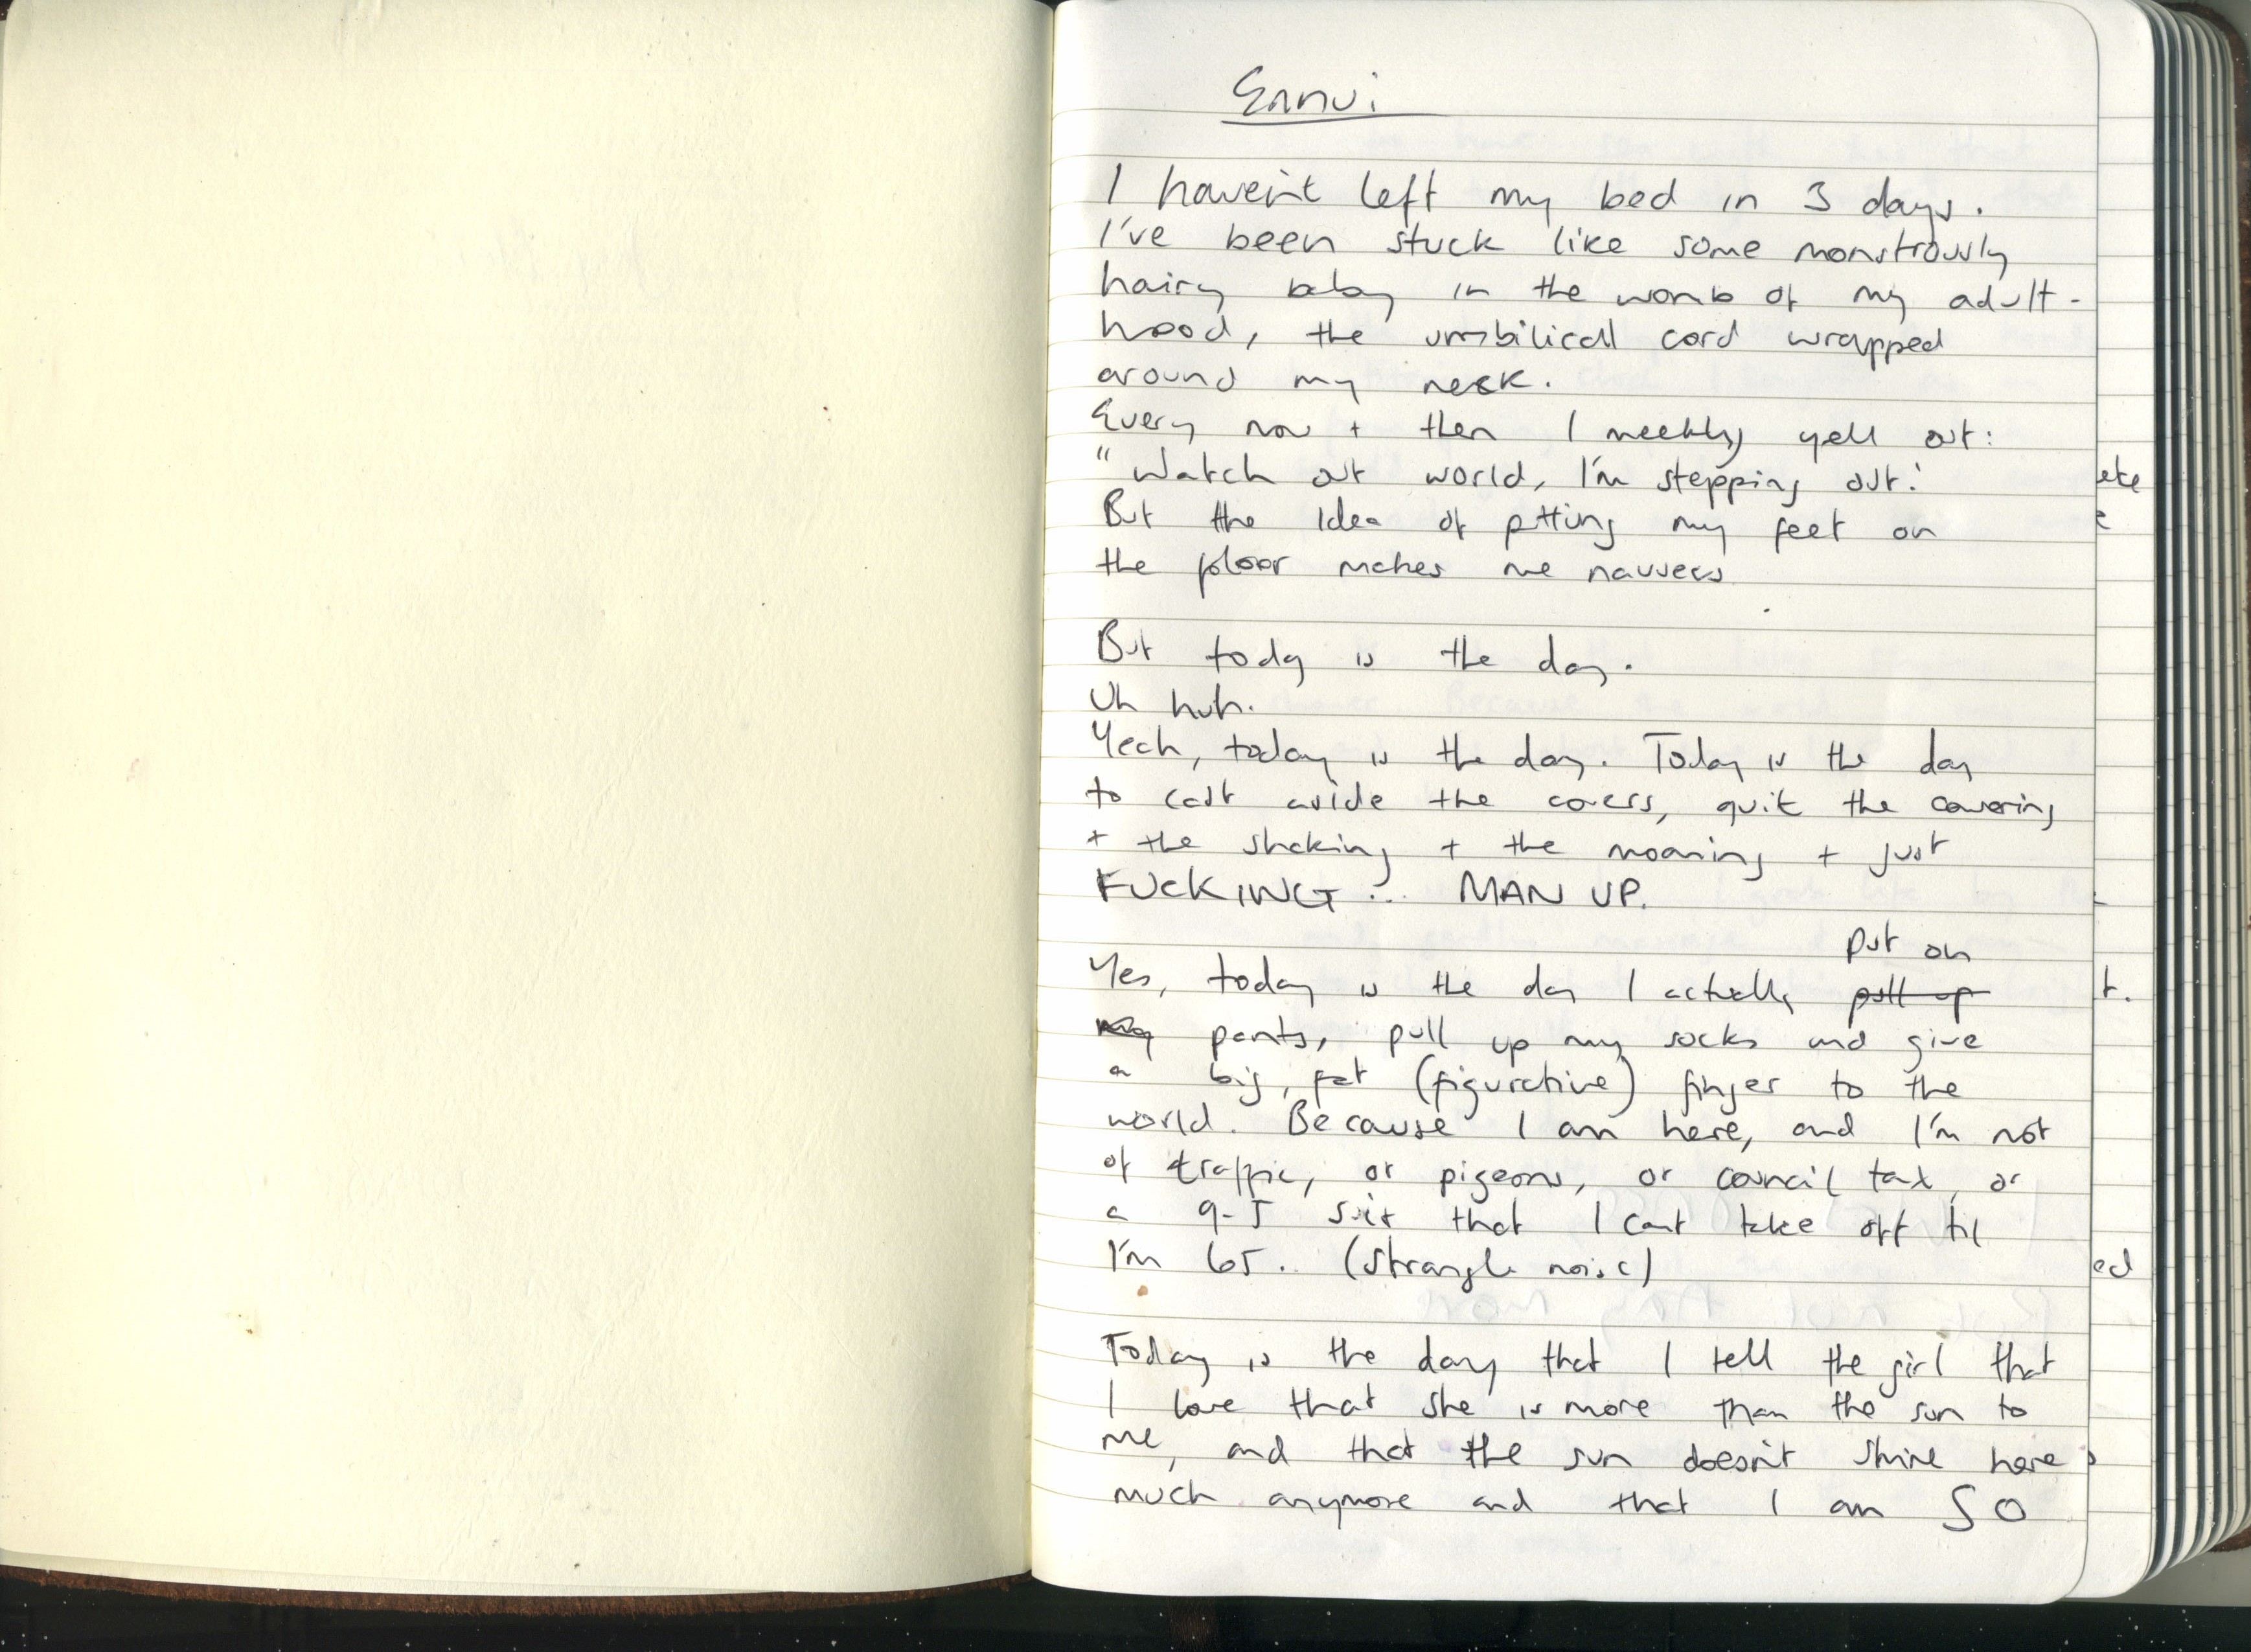 Ennui
I haven't left my bed in 3 days.
I've been stuck like some monstrously
hairy baby in the womb of my adult-
hood, the umbilical cord wrapped
around my neck.
Every now + then I meekly yell out:
"Watch out world, I'm stepping out!
But the idea of putting my feet on
the floor makes me
But today is the day.
Uh huh.
Yeah, today is the day. Today is the day
to cast aside the covers, quit the cowering
+ the shaking + the moaning + just
FUCKING... MAN UP.
put on
Yes, today is the day I actually pull up
my pants, pull up my socks and give
a big, fat (figurative) finger to the
world. Because I am here, and I'm not
of traffic, or pigeons, or council tax, or
a 9-5 suit that I cant take off til
I'm 65.. (strangle noise)
Today is the day that I tell the girl that
I love that she is more than the sun to
me, and that the sun doesn't shine here
much anymore and that I am SO